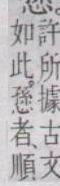 許所據古文
如此。愻者、順